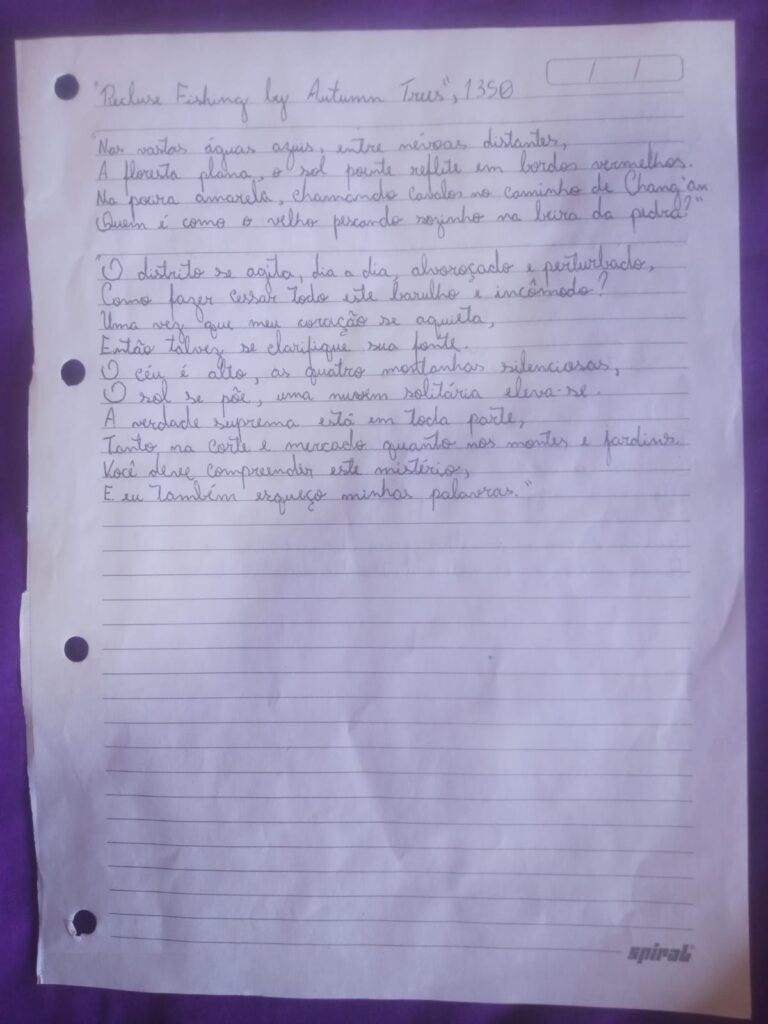 "Recluse Fishing by Autumn Trees", 1350
/ /
Nas vastas águas azuis, entre névoas distantes,
A floresta plana, o sol poente reflete em bordos vermelhos.
Na poeira amarela, chamando cavalos no caminho de Chang'an
Quem é como o velho pescando sozinho na beira da pedra?"
"O distrito se agita, dia a dia, alvoroçado e perturbado,
Como fazer cessar todo este barulho e incômodo?
Uma vez que meu coração se aquieta,
Então talvez se clarifique sua fonte.
O céu é alto, as quatro montanhas silenciosas,
O sol se põe, uma nuvem solitária eleva-se.
A verdade suprema está em toda parte,
Tanto na corte e mercado quanto nos montes e jardins.
Você deve compreender este mistério,
E eu também esqueço minhas palavras."
spiral